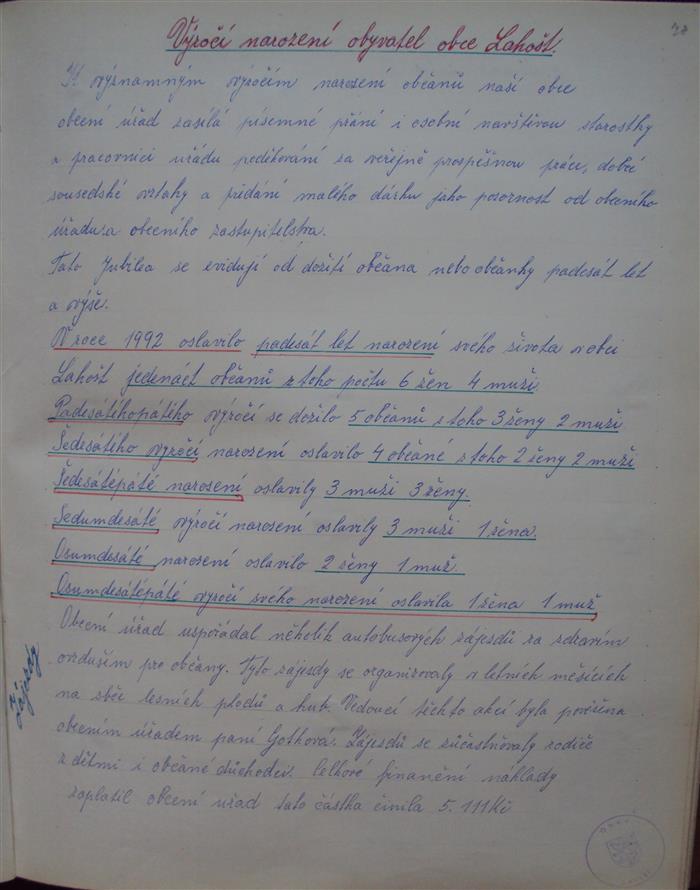 Výročí narození obyvatel obce Lahošt.
K významným výročím narození občanů naší obce
obecní úřad zasílá písemné přání i osobní návštěvou starostky
a pracovnicí úřadu poděkování za veřejně prospěšnou práci, dobré
sousedské vztahy a předání malého dárku jako pozornost od obecního
úřadu a obecního zastupitelstva.
Tato Jubilea se evidují od dožití občana nebo občanky padesát let
a výše.
V roce 1992 oslavilo padesát let narození svého života v obci
Lahošt jedenáct občanů z toho počtu 6 žen 4 muži.
Padesátéhopátého výročí se dožilo 5 občanů z toho 3 ženy 2 muži
Šedesátého výročí narození oslavilo 4 občané z toho 2 ženy 2 muži
Šedesátépáté narození oslavily 3 muži 3 ženy.
Sedumdesáté výročí narození oslavily 3 muži 1 žena.
Osumdesáté narození oslavilo 2 ženy 1 muž.
Osumdesátépáté výročí svého narození oslavila 1 žena 1 muž
Zájezdy
Obecní úřad uspořádal několik autobusových zájezdů za zdravím
ovzduším pro občany. Tyto zájezdy se organizovaly v letních měsících
na sběr lesních plodů a hub. Vedoucí těchto akcí byla pověřena
obecním úřadem paní Gothová. Zájezdů se zúčastňovaly rodiče
z dětmi i občané důchodci. Celkové finanční náklady
zaplatil obecní úřad tato částka činila 5.111 Kč